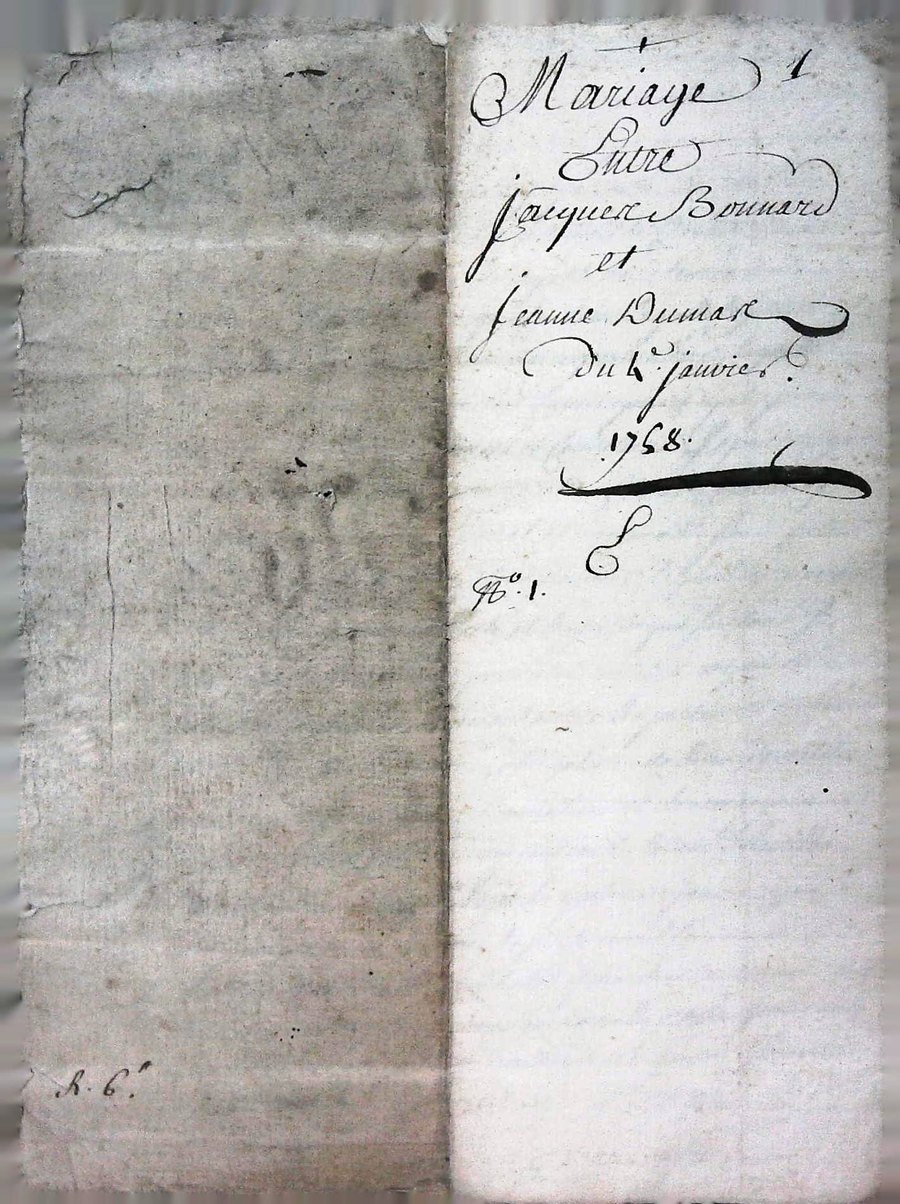 Mariage 1
Entre
Jacques Bonnard
et
Jeanne Dumas
du 4e. janvier
1758.
No. 1.
R. 6s.